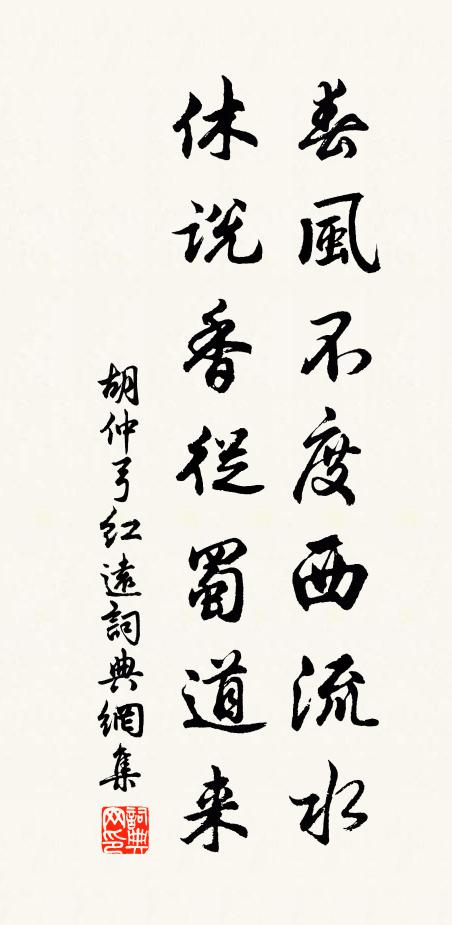 春風不度西流水
休說香從蜀道来
胡仲弓红遠詞典網集
詞典网印